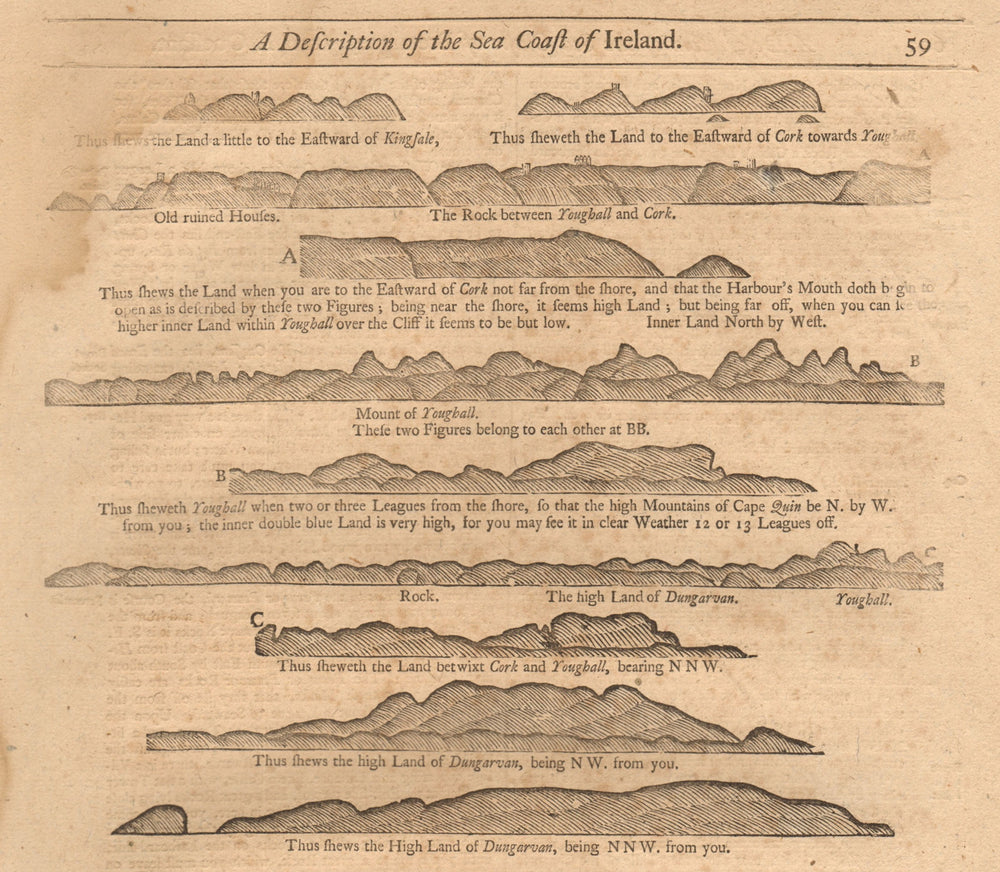 A Deſcription of the Sea Coaſt of Ireland.
59
Thus ſhews the Land a little to the Eaſtward of Kingſale,
Thus ſheweth the Land to the Eaſtward of Cork towards Youghall
A
Old ruined Houſes.
The Rock between Youghall and Cork.
A
Thus ſhews the Land when you are to the Eaſtward of Cork not far from the ſhore, and that the Harbour's Mouth doth begin to
open as is deſcribed by theſe two Figures; being near the ſhore, it ſeems high Land; but being far off, when you can ſee the
higher inner Land within Youghall over the Cliff it ſeems to be but low.
Inner Land North by Weſt.
B
Mount of Youghall.
Theſe two Figures belong to each other at BB.
B
Thus ſheweth Youghall when two or three Leagues from the ſhore, ſo that the high Mountains of Cape Quin be N. by W.
from you; the inner double blue Land is very high, for you may ſee it in clear Weather 12 or 13 Leagues off.
C
Rock.
The high Land of Dungarvan.
Youghall.
C
Thus ſheweth the Land betwixt Cork and Youghall, bearing NNW.
Thus ſhews the high Land of Dungarvan, being NW. from you.
Thus ſhews the High Land of Dungarvan, being NNW. from you.